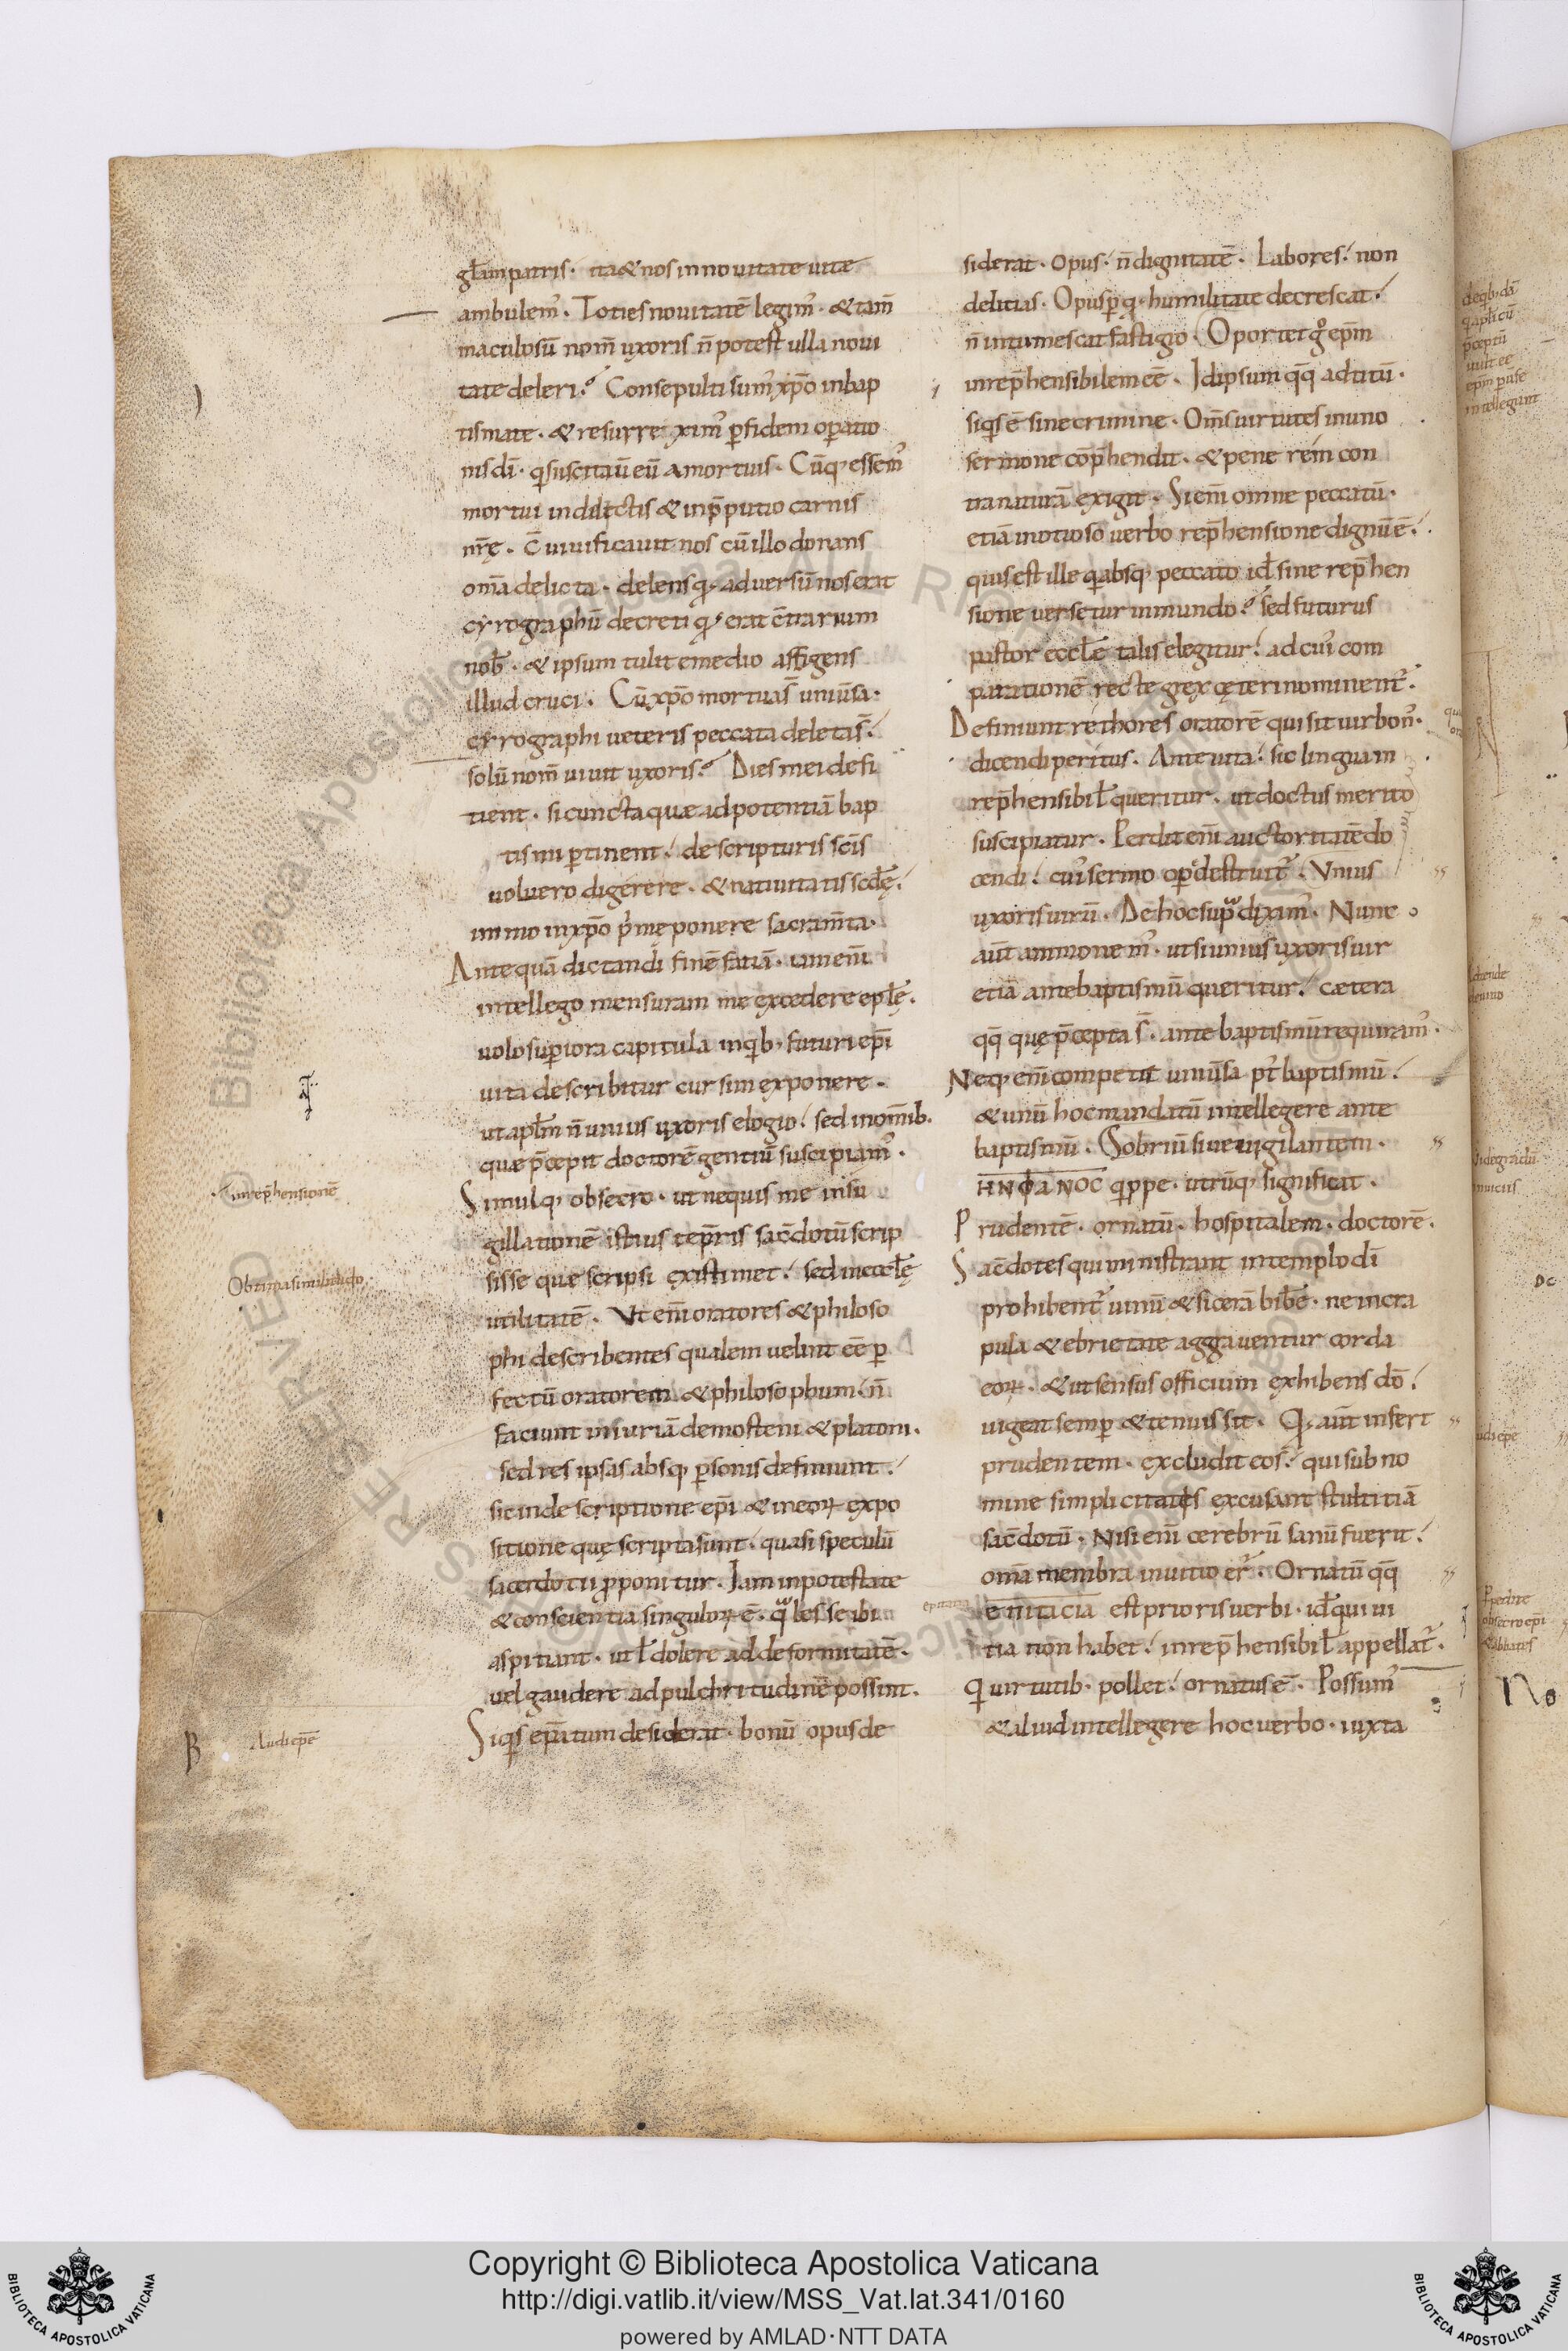 gl̄am patris· ita & nos in nouitate uitae
ambulem᾿· Toties nouitatē legim᾿· & tam̄
maculosū nom̄ uxoris n̄ potest ulla noui
tate deleri? Consepulti sum᾿ xp̄o in bap
tismate· & resurreximus p̄ fidem operatio
nis dī· q suscitauit eū a mortuis· Cūq; essem᾿
mortui in delictis & in p̄putio carnis
nr̄ę· c̄uiuificauit nos cū illo donans
om̄a delicta· delens q; aduersū nos erat
cyrographū decreti q; erat c̄trarium
nob̄· & ipsum tulit e medio affigens
illud cruci· Cū xp̄o mortua s̄ uniūsa·
cyrographi ueteris peccata deleta s̄·
solū nom̄ uiuit uxoris? Dies mei defi
tient· si cuncta quae ad potentiā bap
tismi ptinent· de scripturis scīs
uoluero digerere· & natiuitatis scd̄ę·
immo in xp̄o p᾿mę ponere sacram̄ta·
Antequā dictandi finē fatiā· iam enī
intellego mensuram me excedere epl̄ę·
uolo supiora capitula in qb; futuri ep̄i
uita describitur cursim exponere·
ut apl̄m n̄ unius uxoris elogio· sed in om̄ib;
quae p̄cepit doctorē gentiū suscipiam᾿·
Simulq; obsecro· ut nequis me in su
gillationē istius tēp̄ris sac̄dotū scrip
sisse que scripsi existimet· sed in eccl̄ę
utilitatē· Ut enī oratores & philoso
phi describentes qualem uelint eē p
fectū oratorem & philosophum· n̄
faciunt iniuriā demosteni & platoni·
sed res ipsas absq; psonis definiunt·
sic in descriptione ep̄i & in eoꝝ expo
sitione quę scripta sunt· quasi speculū
sacerdotii proponitur· Iam in potestate
& conscientia singuloꝝ ē· qales se ibi
aspitiant· ut l̄ dolere ad deformitatē·
uel gaudere ad pulchritudinē possint·
Siqs ep̄atum desiderat· bonū opus de
siderat· opus· n̄ dignitatē· Labores· non
delitias· Opus p q; humilitate decrescat·
n̄ intumescat fastigio· Oportet g̊ ep̄m
inrep̄hensibilem eē· Id ipsum qq̄ ad titū·
siqs ē sine crimine· Om̄s uirtutes in uno
sermone cōp̄hendit· & pene rem con
tra naturā exigit· Si enī omne peccatū·
etiā in otioso uerbo rep̄hensione dignū ē·
quis est ille q absq; peccato id̄ sine rep̄hen
sione uersetur in mundo? sed futurus
pastor eccl̄e talis elegitur· ad cui᾿ com
parationē recte grex ceteri nominent᾿·
Definiunt rethores oratorē qui sit uir bon᾿·
dicendi peritus· Ante uita· sic lingua in
rep̄hensibil̄ queritur· ut doctus merito
suscipiatur· Perdit enī auctoritatē do
cendi· cui᾿ sermo ope destruit᾿· Unius
uxoris uirū· De hoc supa dixim᾿· Nunc
aūt ammonem᾿· ut si unius uxoris uir
etiā ante baptismū queritur· cetera
qq̄ quę p̄cepta s̄· ante baptismū requiram᾿·
Neq; enī competit uniūsa p᾿t baptismū·
& unū hoc mandatū intellegere ante
baptismū· Sobriū siue uigilantem·
HNΦaΝΟC qippe· utrūq; significat·
Prudentē· ornatū· hospitalem· doctorē·
Sac̄dotes qui ministrant in templo dī
prohibent᾿ uinū & sicerā bibe· ne in cra
pula & ebrietate aggrauentur corda
eoꝝ· & ut sensus officium exhibens dō·
uigeat semp & tenuis sit· Q; aūt infert
prudentem· excludit eos· qui sub no
mine simplicitatis excusant stultitiā
sac̄dotū· Nisi enī cerebrū sanū fuerit·
om̄a membra in uitio er̄· Ornatū qq̄
est prioris uerbi· id̄ qui ui
tia non habet· inrep̄hensibil̄ appellat᾿·
Q uirtutib; pollet· ornatus ē· Possum᾿
& aliud intellegere hoc uerbo· iuxta
inrep̄hensionē
Obtima similitudo
Audi ep̄e
Copyright © Biblioteca Apostolica Vaticana
http://digi.vatlib.it/view/MSS_Vat.lat.341/0160
powered by AMLAD·NTT DATA
BIBLIOTECA APOSTOLICA VATICANA
BIBLIOTECA APOSTOLICA VATICANA